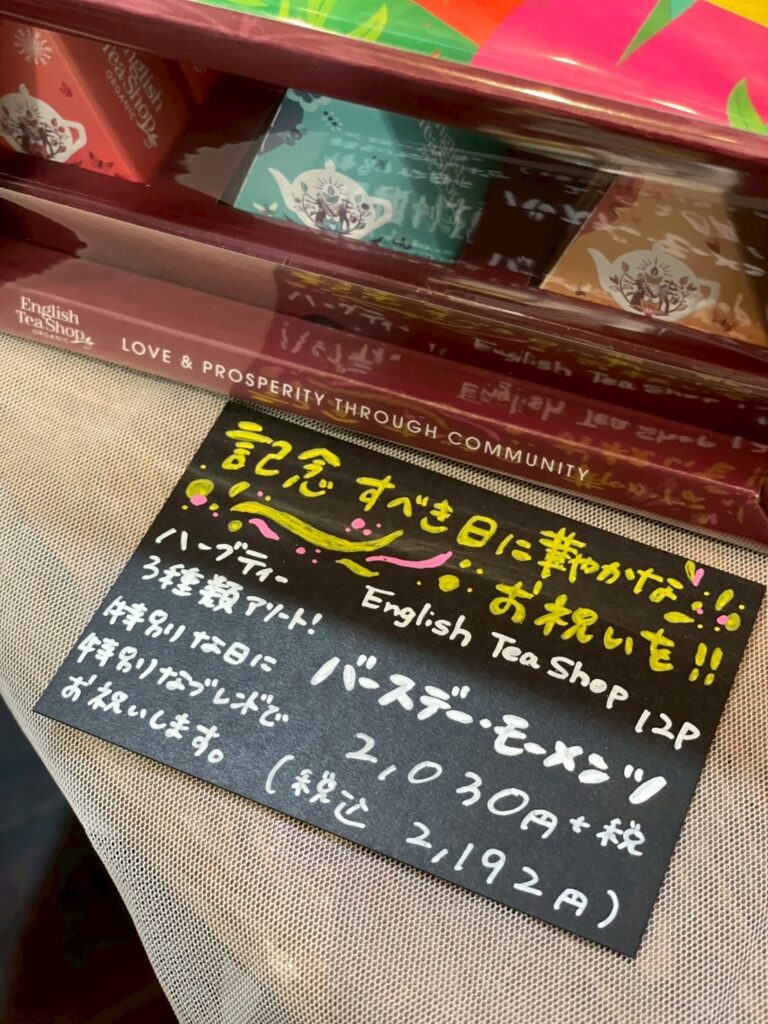 English
Tea Shop
ORGANIC
English
Tea Shop
ORGANIC
LOVE & PROSPERITY THROUGH COMMUNITY
記念すべき日に華やかな
お祝いを!!
ハーブティー
3種類アソート!
特別な日に
特別なブレンドで
お祝いします。
English Tea Shop 12P
バースデー・モーメンツ
2,030円+税
(税込 2,192円)